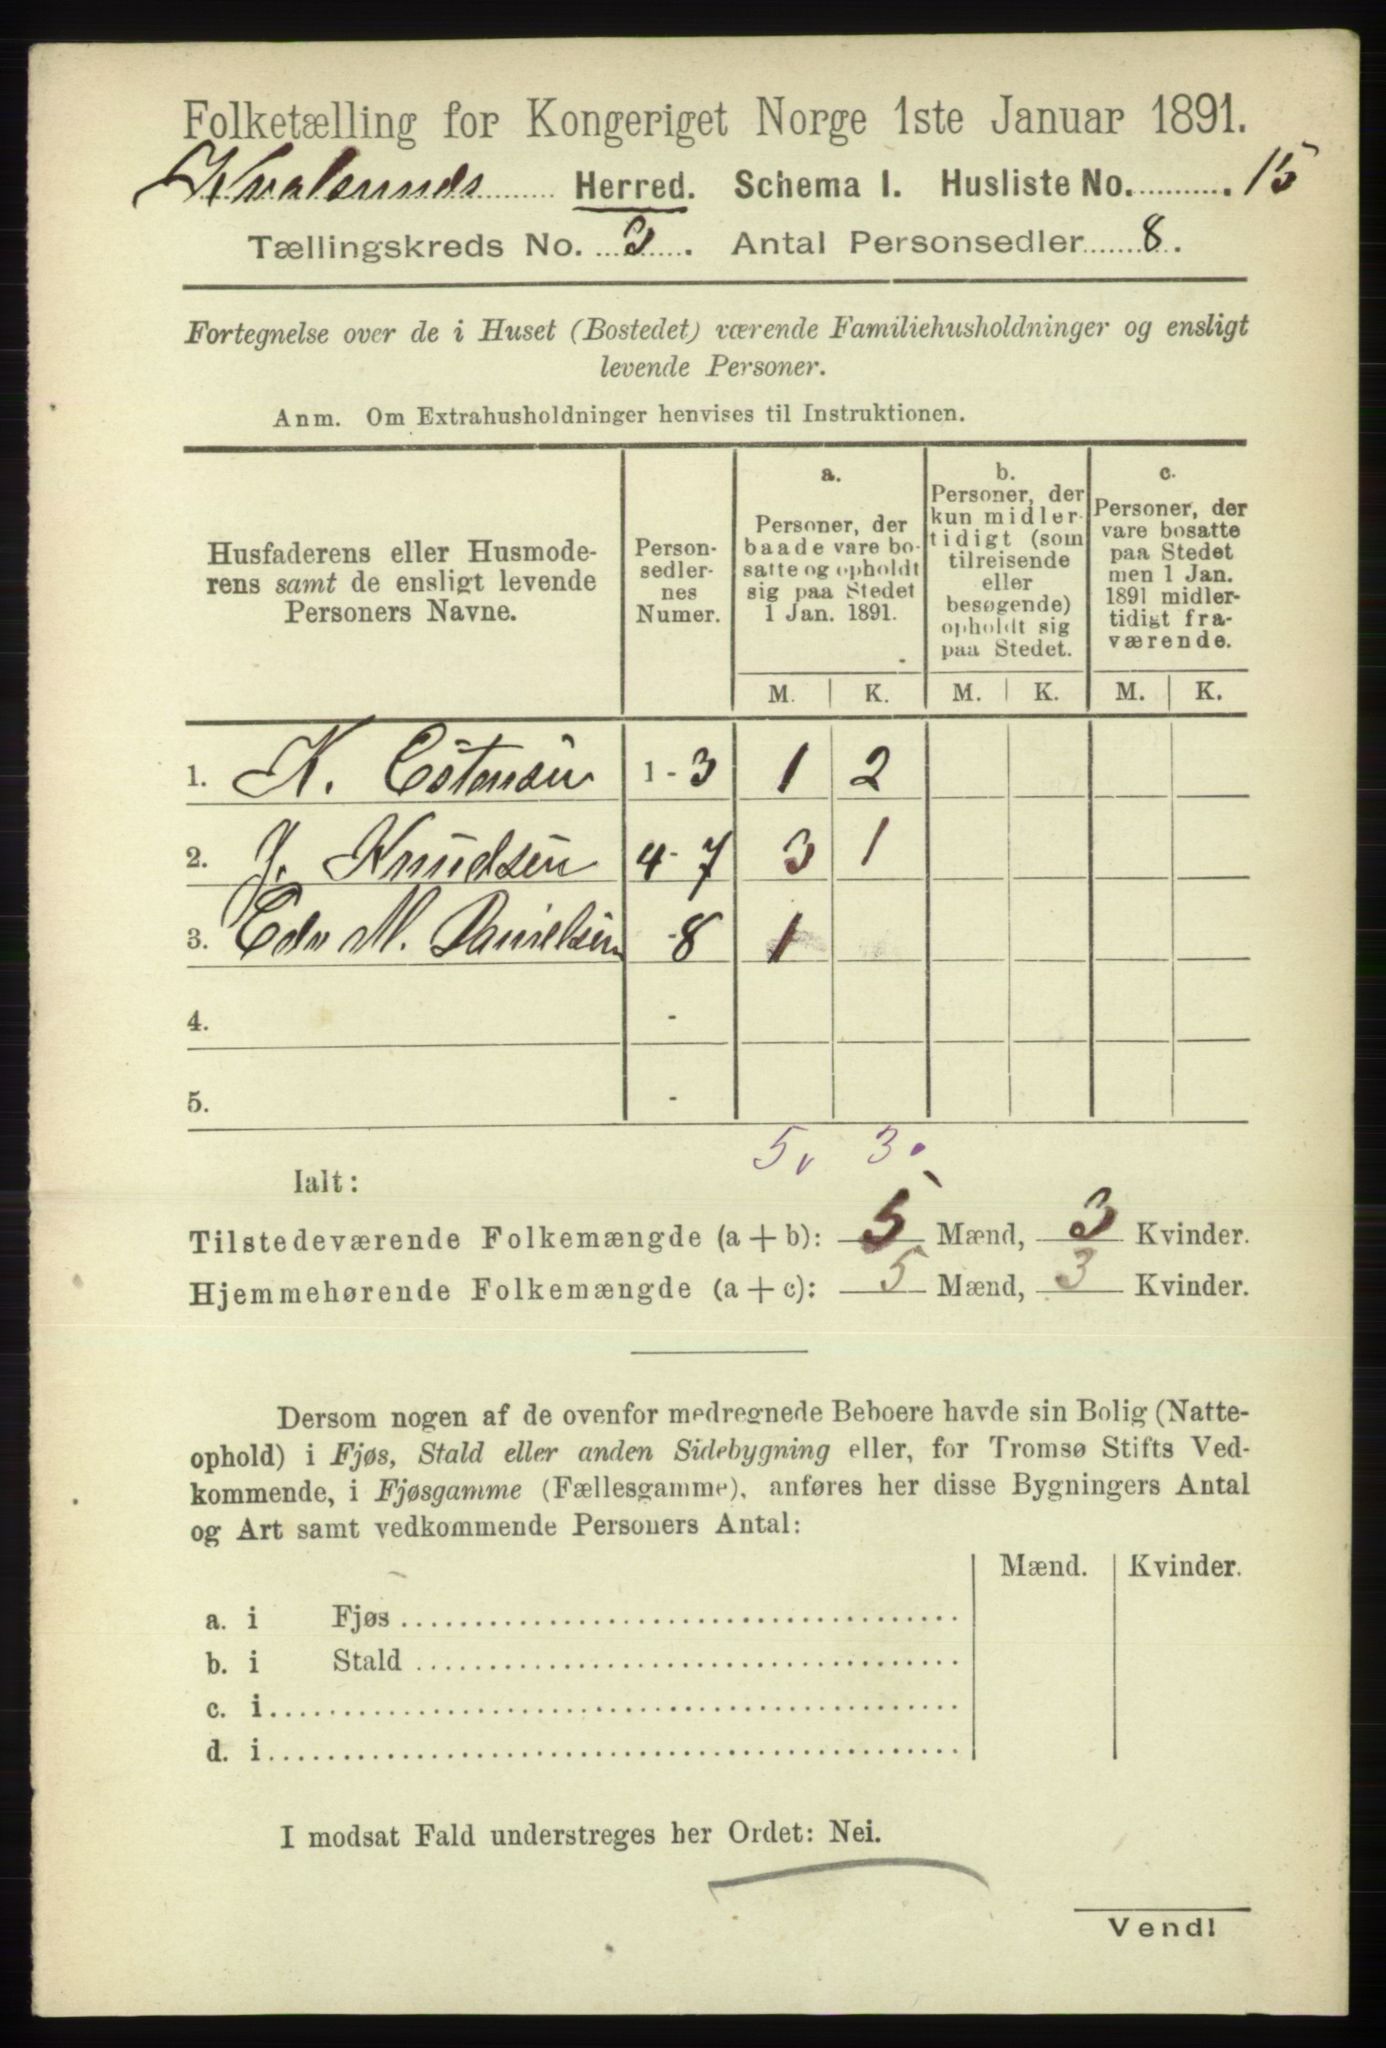 Folketælling for Kongeriget Norge 1ste Januar 1891.
Kvalsunds Herred. Schema I. Husliste No. 15
Tællingskreds No. 3. Antal Personsedler 8.
Fortegnelse over de i Huset (Bostedet) værende Familiehusholdninger og ensligt
levende Personer.
Anm. Om Extrahusholdninger henvises til Instruktionen.
Husfaderens eller Husmode-
rens samt de ensligt levende
Personers Navne.
Person-
sedler-
nes
Numer.
a.
Personer, der
baade vare bo-
satte og opholdt
sig paa Stedet
1 Jan. 1891.
b.
Personer, der
kun midler-
tidigt (som
tilreisende
eller
besøgende)
opholdt sig
paa Stedet.
c.
Personer, der
vare bosatte
paa Stedet
men 1 Jan.
1891 midler-
tidigt fra-
værende.
M. K. M. K. M. K.
1. K. Estensen 1-3 1 2
2. J. Knudsen 4-7 3 1
3. Edv M. Danielsen -8 1
4. -
5. -
5, 3.
Ialt:
Tilstedeværende Folkemængde (a + b): 5 Mænd, 3 Kvinder.
Hjemmehørende Folkemængde (a + c): 5 Mænd, 3 Kvinder.
Dersom nogen af de ovenfor medregnede Beboere havde sin Bolig (Natte-
ophold) i Fjøs, Stald eller anden Sidebygning eller, for Tromsø Stifts Ved-
kommende, i Fjøsgamme (Fællesgamme), anføres her disse Bygningers Antal
og Art samt vedkommende Personers Antal:
Mænd. Kvinder.
a. i Fjøs
b. i Stald
c. i
d. i
I modsat Fald understreges her Ordet: Nei.
Vend!